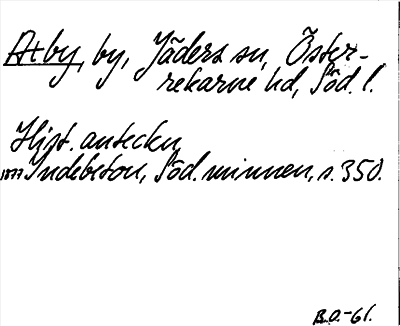 Åtby, by, Jäders sn, Öster-
rekarne hd, Söd. l.
Hist. anteckn.
1877 Indebetou, Söd. minnen, s. 350.
B.O.-61.